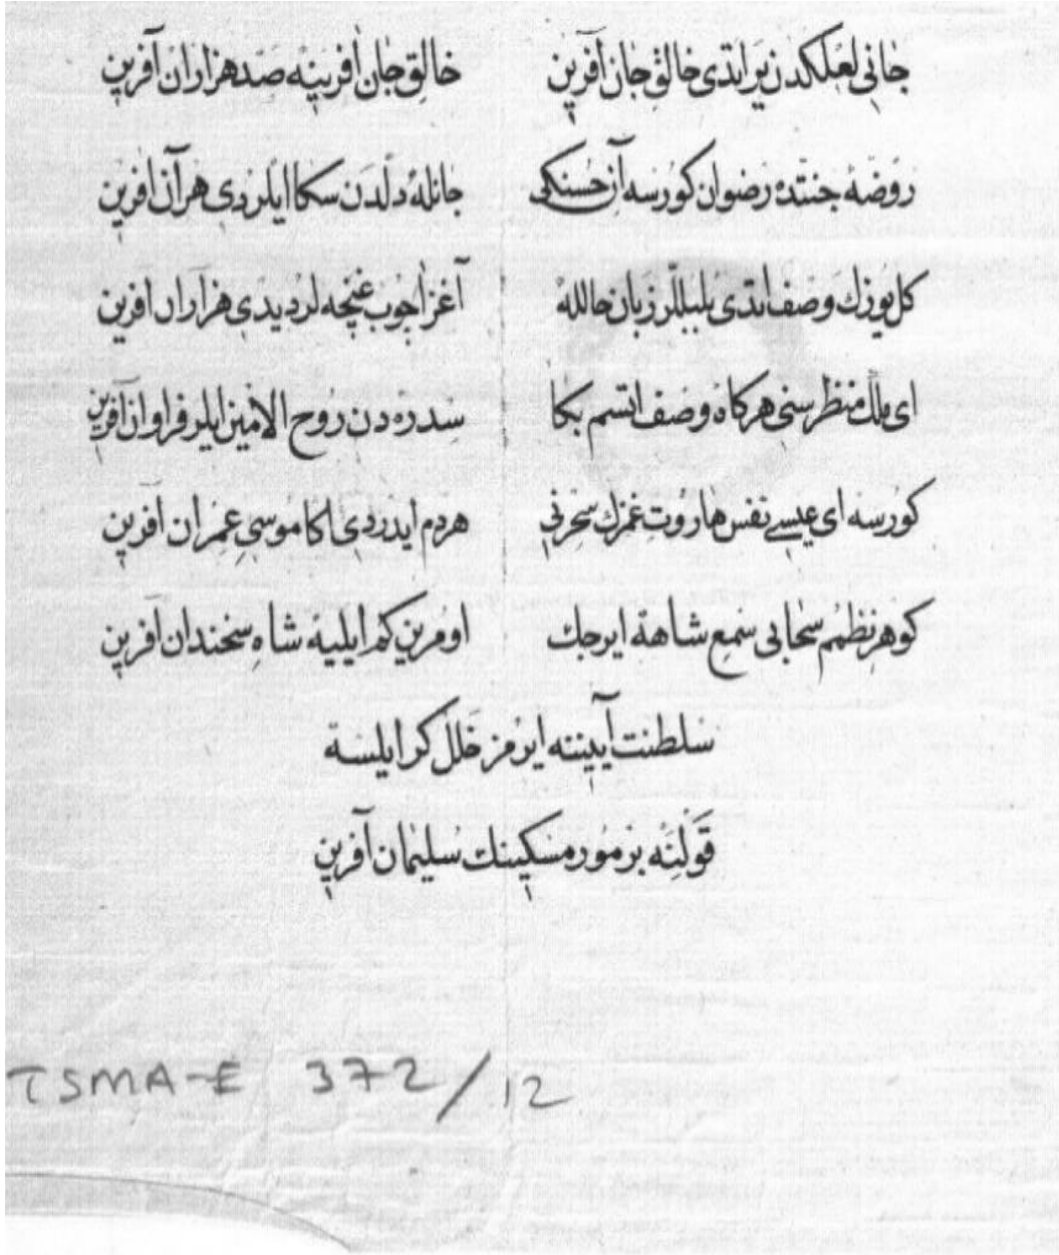 جانی لعلكدن یر ایتدی خالق جان آفرین خالق جان آفرینه صد هزاران آفرین
روضهٔ جنتده رضوان كورسه آن حسنكی جانله دلدن سكا ایلردی هر آن آفرین
كل یوزك وصف ایتدی بلبللر زبان حالله آغز آچوب غنچه لر دیدی هزاران آفرین
ای ملك منظر سنی هركاه وصف ایتسم بكا سدره دن روح الامین ایلر فراوان آفرین
كورسه ای عیسی نفس هاروت غمزك سحرنی هردم ایدردی اكا موسی عمران آفرین
كوهر نظمم سحابی سمع شاهه ایرجك اومرین كم ایلیه شاه سخندان آفرین
سلطنت آییننه ایرمز خلل كر ایلسه
قولنه بر مور مسكینك سلیمان آفرین
TSMA-E 372/12